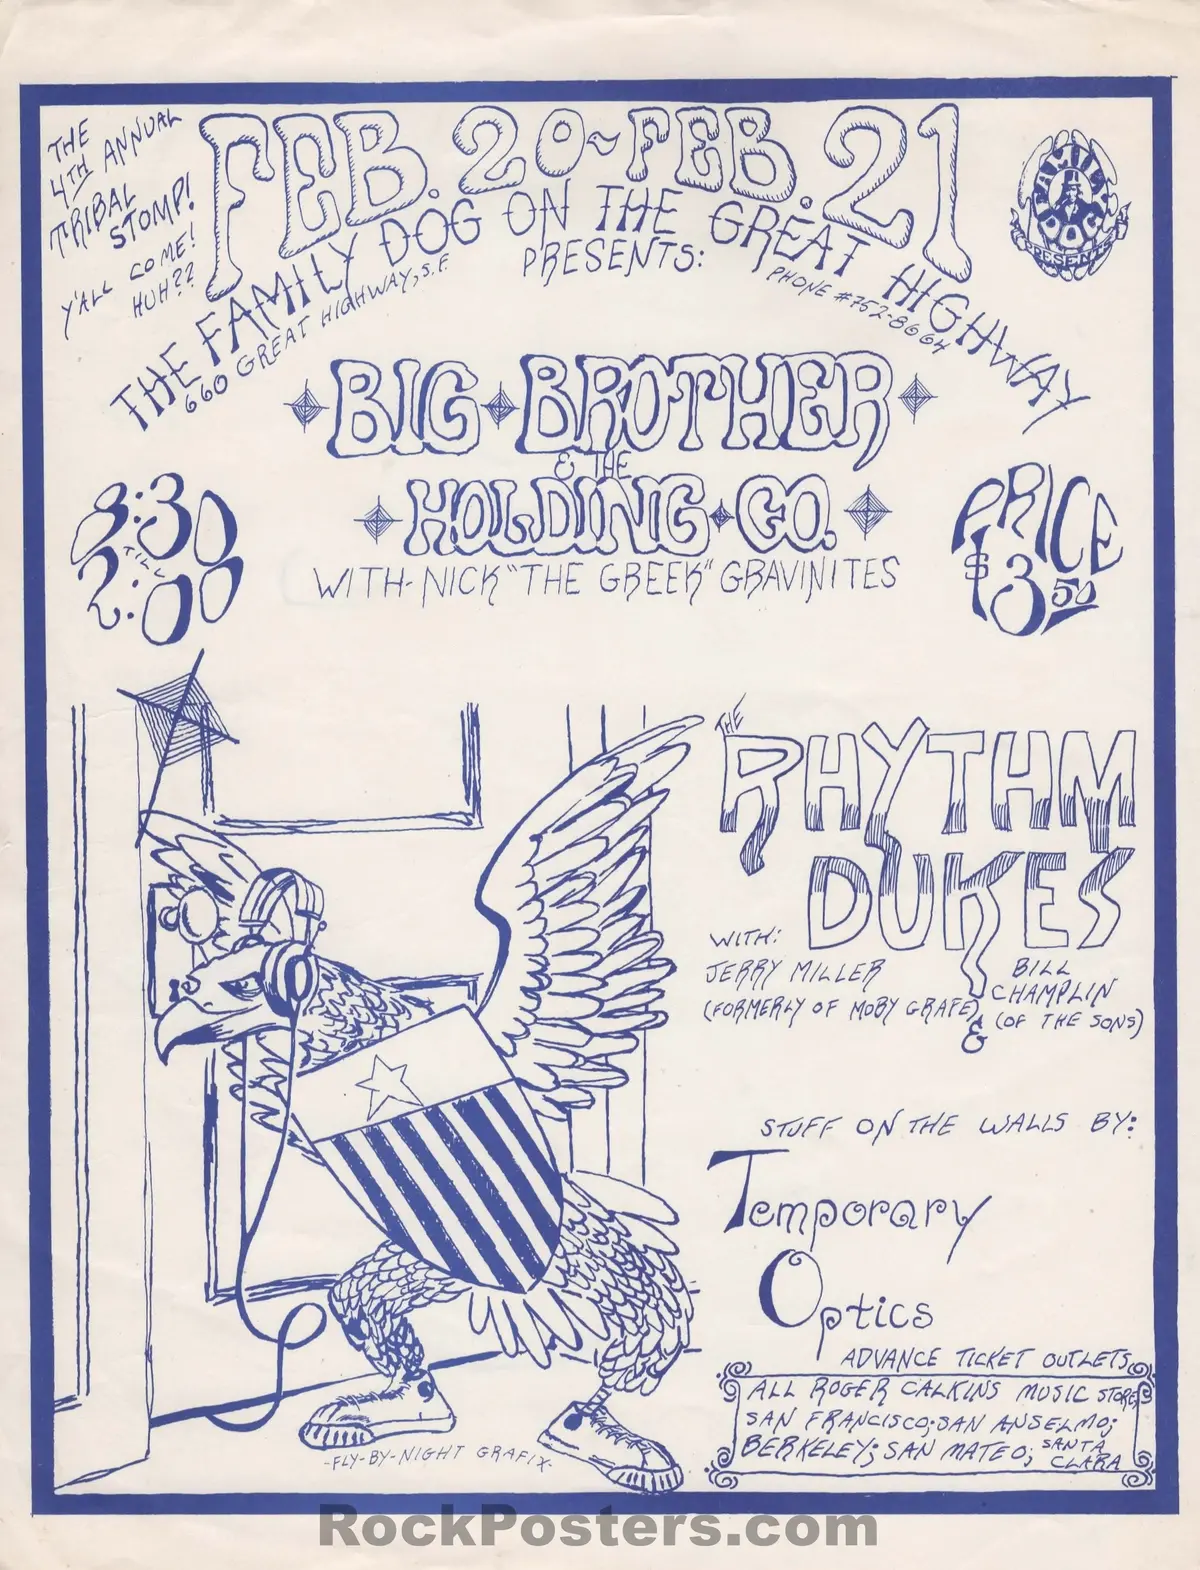 THE
4TH ANNUAL
TRIBAL
STOMP!
Y'ALL COME!
HUH??
FEB. 20~FEB. 21
THE FAMILY DOG ON THE GREAT HIGHWAY
660 GREAT HIGHWAY, S.F.
PRESENTS:
PHONE #752-8664
FAMILY
DOG
PRESENTS
BIG BROTHER
& THE
HOLDING CO.
WITH-NICK "THE GREEK" GRAVINITES
8:30
TILL
2:00
PRICE
$3.50
THE
RHYTHM
DUKES
WITH:
JERRY MILLER
(FORMERLY OF MOBY GRAPE)
&
BILL
CHAMPLIN
(OF THE SONS)
STUFF ON THE WALLS BY:
Temporary
Optics
ADVANCE TICKET OUTLETS
ALL ROGER CALKINS MUSIC STORES
SAN FRANCISCO; SAN ANSELMO;
BERKELEY; SAN MATEO; SANTA
CLARA
-FLY-BY-NIGHT GRAFIX-
RockPosters.com